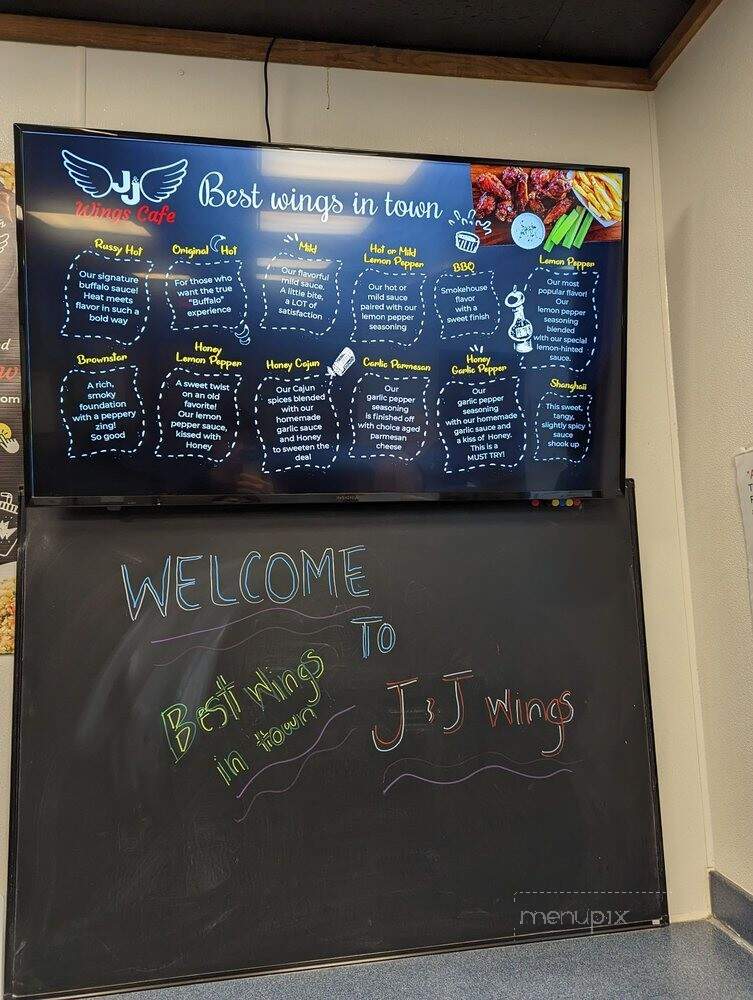 JJ
Wings Cafe
Best wings in town
Russy Hot
Our signature
buffalo sauce!
Heat meets
flavor in such a
bold way
Original Hot
For those who
want the true
"Buffalo"
experience
Mild
Our flavorful
mild sauce.
A little bite,
a LOT of
satisfaction
Hot or Mild
Lemon Pepper
Our hot or
mild sauce
paired with our
lemon pepper
seasoning
BBQ
Smokehouse
flavor
with a
sweet finish
Lemon Pepper
Our most
popular flavor!
Our
lemon pepper
seasoning
blended
with our special
lemon-hinted
sauce.
Brownstar
A rich,
smoky
foundation
with a peppery
zing!
So good
Honey
Lemon Pepper
A sweet twist
on an old
favorite!
Our lemon
pepper sauce,
kissed with
Honey
Honey Cajun
Our Cajun
spices blended
with our
homemade
garlic sauce
and Honey
to sweeten the
deal
Garlic Parmesan
Our
garlic pepper
seasoning
is finished off
with choice aged
parmesan
cheese
Honey
Garlic Pepper
Our
garlic pepper
seasoning
with our homemade
garlic sauce and
a kiss of Honey.
This is a
MUST TRY!
Shanghaii
This sweet,
tangy,
slightly spicy
sauce
shook up
INSIGNIA
WELCOME
TO
Best wings
in town
J & J Wings
menupix